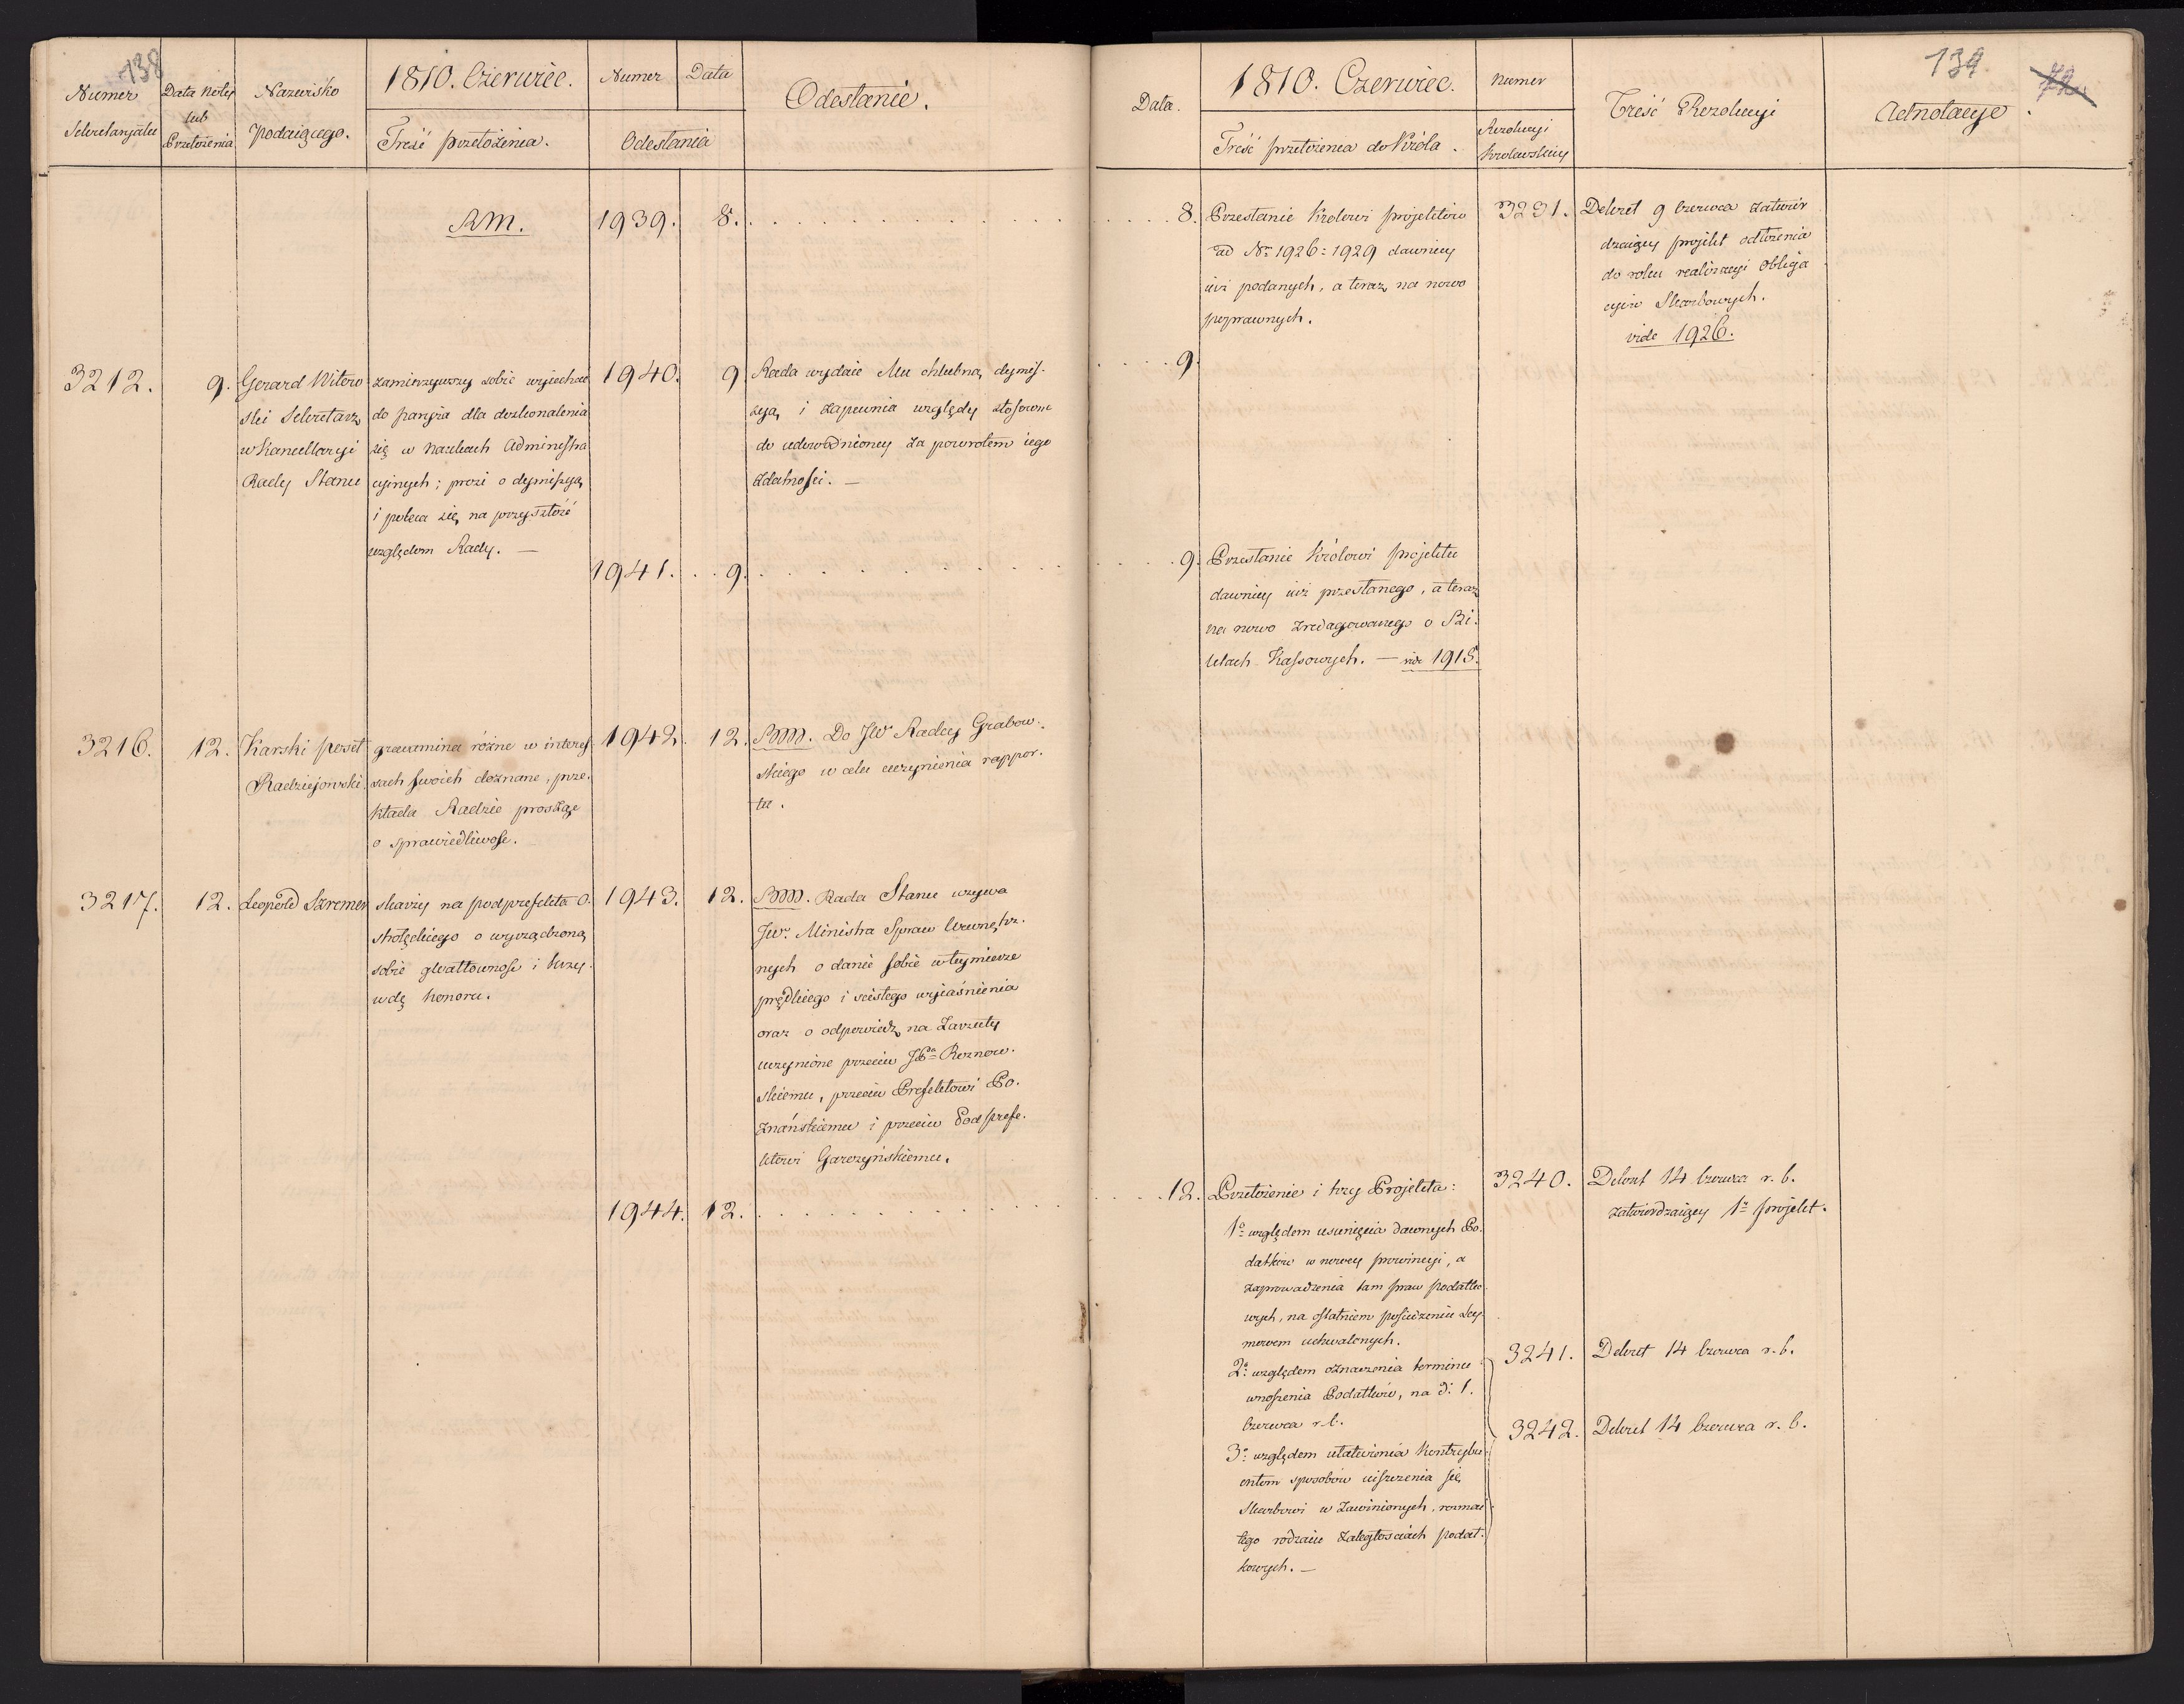 138
Numer
Sekretaryatu
Data Noty
lub
Przełożenia
Nazwisko
Podaiącego.
1810. Czerwiec.
Treść przełożenia.
Numer
Data
Odesłania
Odesłanie.
AM.
1939.
8.
3212.
9.
Gerard Witow
ski Sekretarz
w Kancellaryi
Rady Stanu
zamierzywszy sobie wyjechać
do paryża dla doskonalenia
się w naukach Administra
cyinych; prosi o dymissyą,
i poleca się na przyszłość
względom Rady. —
1940.
9
Rada wydaie Mu chlubną dymis-
syą, i zapewnia względy stosowne
do udowodnioney za powrotem iego
zdatności. —
1941.
9.
3216.
12.
Karski poseł
Radziejowski
gravamina różne w interes
sach swoich doznane, prze-
kłada Radzie prosząc
o sprawiedliwość.
1942.
12.
BMM. Do JW Radcy Grabow-
skiego w celu uczynienia rappor-
tu.
3217.
12.
Leopold Szremer
skarży na podprefekta O-
strołęckiego o wyrządzoną
sobie gwałtowność i krzy-
wdę honoru.
1943.
12.
BMM. Rada Stanu wzywa
JW. Ministra Spraw Wewnętrz-
nych o danie sobie w tey mierze
prędkiego i ścisłego wyiaśnienia
oraz o odpowiedź na Zarzuty
uczynione przeciw Roznow-
skiemu, przeciw Prefektowi Po-
znańskiemu i przeciw Podprefe-
ktowi Garczyńskiemu.
1944.
12.
139
72.
Data.
1810. Czerwiec.
Treść przełożenia do Króla.
Numer
Rezolucyi
Królewskiey
Treść Rezolucyi
Adnotacye.
8.
Przesłanie Królowi projektów
ad Nr 1926: 1929 dawniey
iuż podanych, a teraz na nowo
poprawnych.
3231.
Dekret 9 Czerwca zatwier
dzaiący projekt odłożenia
do roku realizacyi Obliga
cyiów Skarbowych.
vide 1926.
9.
9.
Przesłanie Królowi projektu
dawniey iuż przesłanego, a teraz
na nowo zredagowanego o Bi-
letach Kassowych. — vide 1915.
12.
Przełożenie i trzy Projekta:
1o względem usunięcia dawnych Po-
datków w nowey prowincyi, a
zaprowadzenia tam praw podatko
wych, na ostatniem posiedzeniu Sey
mowem uchwalonych.
2o względem oznaczenia terminu
wnoszenia Podatków, na d. 1.
Czerwca r.b.
3o względem ułatwienia kontrybu-
entom sposobów uiszczenia się
Skarbowi w zawinionych, rozmai
tego rodzaiu zaległościach podat-
kowych. —
3240.
Dekret 14 Czerwca r. b.
zatwierdzaiący 1o projekt.
3241.
Dekret 14 Czerwca r. b.
3242.
Dekret 14 Czerwca r. b.